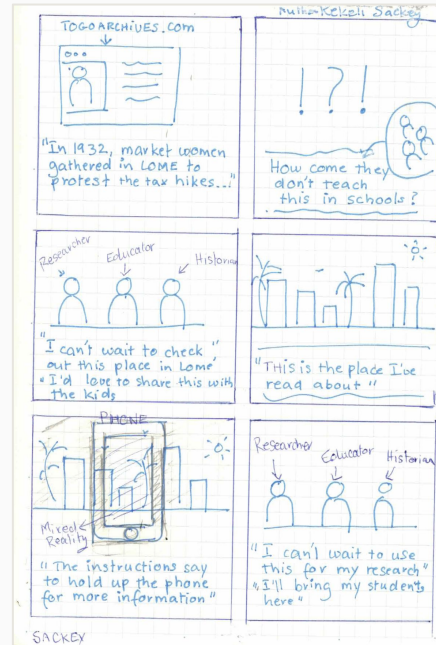 Kekeli Sackey
TOGOARCHIVES.com
"In 1932, market women
gathered in LOME to
protest the tax hikes..."
! ? !
How come they
don't teach
this in schools?
Researcher
Educator
Historian
"I can't wait to check
out this place in Lomé"
"I'd love to share this with
the kids
"THIS is the place I've
read about"
PHONE
Mixed
Reality
"The instructions say
to hold up the phone
for more information"
Researcher
Educator
Historian
"I can't wait to use
this for my research"
"I'll bring my students
here"
SACKEY